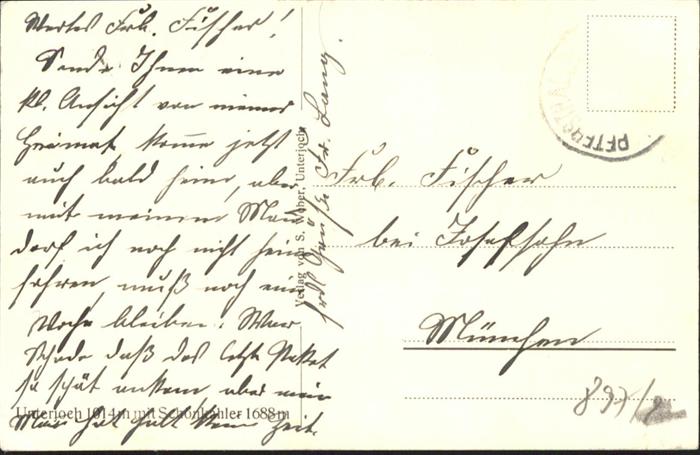 Wertes Frl. Fischer!
Sende Ihnen eine
kl. Ansicht von meiner
Heimat komme jetzt
auch bald heim, aber
mit meinem Mann
darf ich noch nicht heim
fahren, muß noch eine
Woche bleiben. War
schade daß das letzte Paket
so spät ankam aber mein
Mann hat halt kein Zeit.
Unterjoch 1014m mit Schönkahler 1688m
Verlag von S. Weber, Unterjoch
Grüße Fr. Lang.
PETERSTHAL
Frl. Fischer
bei Josefsohn
München